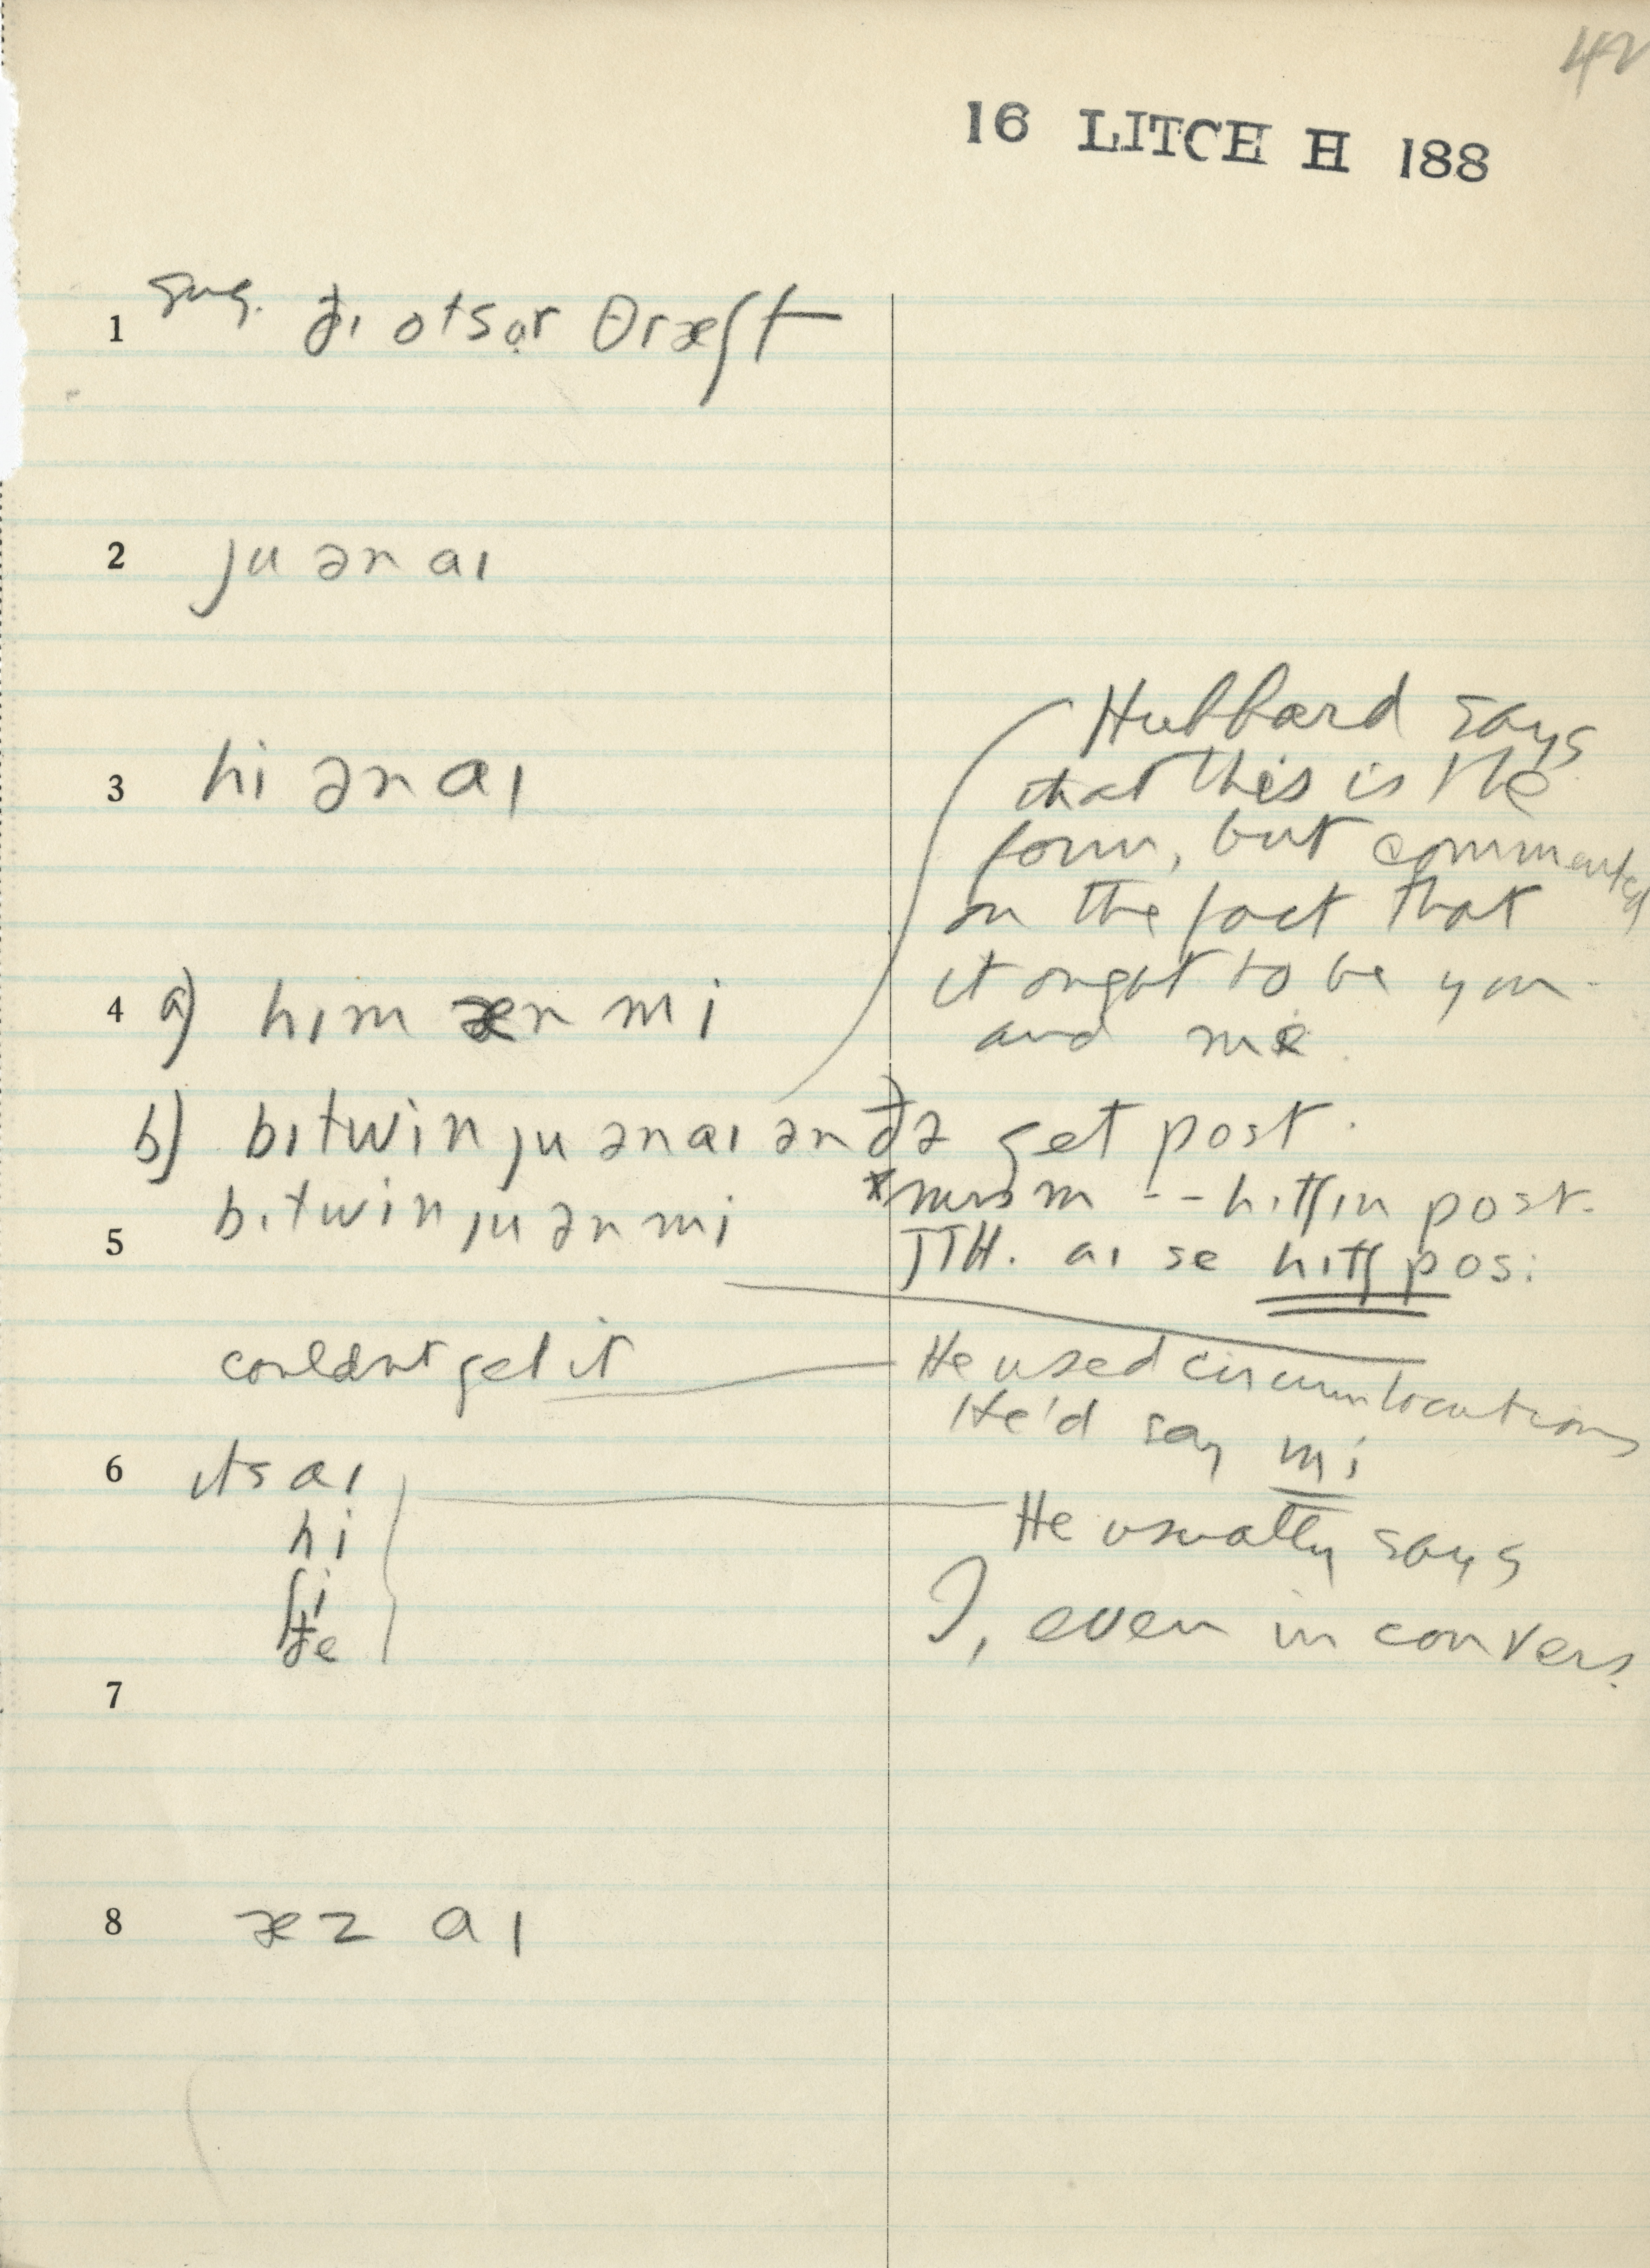 42
16 LITCH H 188
1 sug. ðɪ otsər θræʃt
2 ju ən aɪ
3 hi ən aɪ
Hubbard says
that this is the
form, but commented
on the fact that
it ought to be you
and me.
4 a) hɪm æn mi
b) bɪtwin ju ən aɪ ən ðə get post.
* Mrs M -- hɪtʃɪn post.
bɪtwin ju ən mi
5
JTH. aɪ se hɪtʃ pos:
couldnt get it
He used circumlocutions
He'd say mi
6 ɪts aɪ
hi
ʃi
ðe
He usually says
I, even in convers.
7
8 æz aɪ